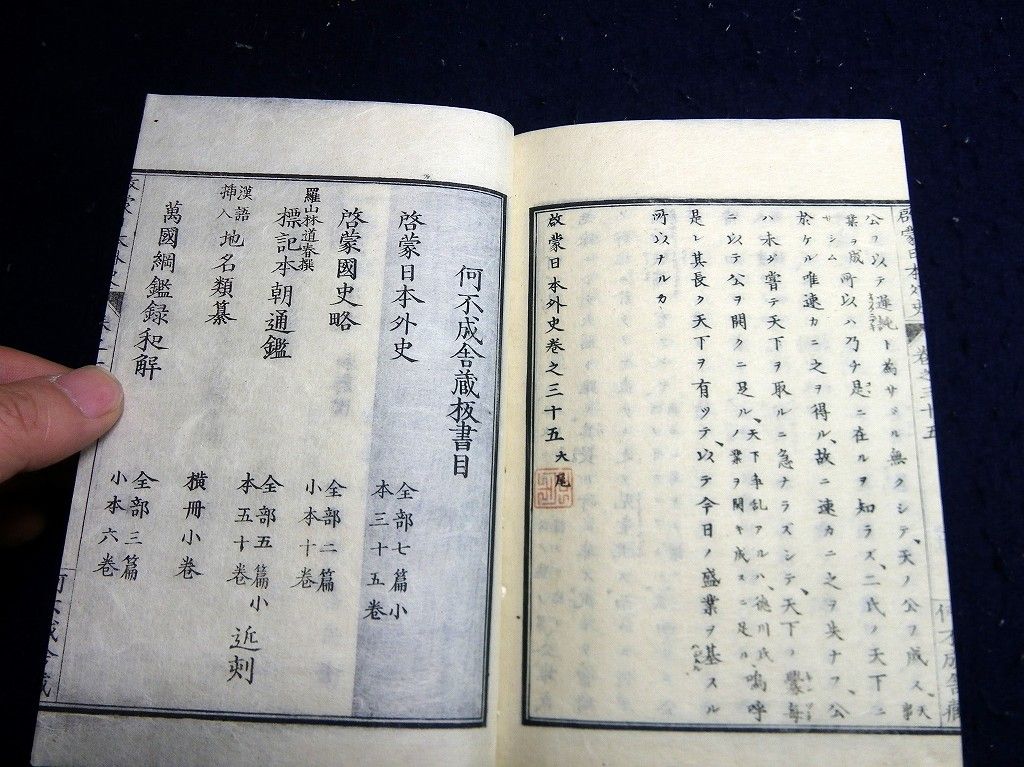 公ヲ以テ遲鈍ト為サシル無クシテ、天ノ公ヲ成ス、天
業ヲ成所以ハ乃チ是ニ在ルヲ知ラズ、二氏ノ天下ニ
於ケル唯速カニ之ヲ得ル、故ニ速カニ之ヲ失ナフ、公
ハ未ダ嘗テ天下ヲ取ルニ急ナラズシテ、天下ノ
ニ以テ公ヲ開クニ足ルノ業ヲ開キ成スニ足ル、嗚呼
是レ其長ク天下ヲ有ツテ、以テ今日ノ盛業ヲ基スル
所以ナルカ
啓蒙日本外史卷之三十五 大尾
何不成舎蔵板書目
啓蒙日本外史 全部七篇小本三十五卷
啓蒙國史略 全部二篇小本十卷
羅山林道春撰 標記本朝通鑑 全部五篇小本五十卷 近刻
漢語挿入 地名類纂 横冊小卷
萬國綱鑑録和解 全部三篇小本六卷